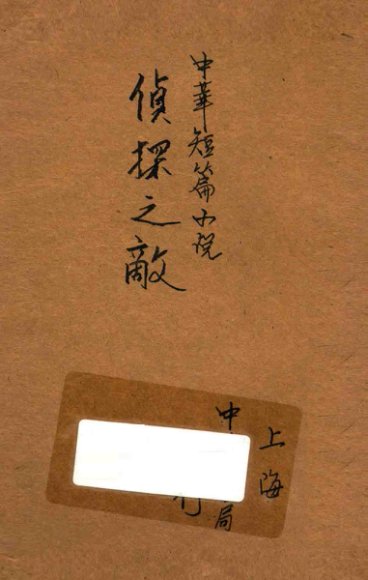 中華短篇小说
偵探之敵
上海
中 局
行